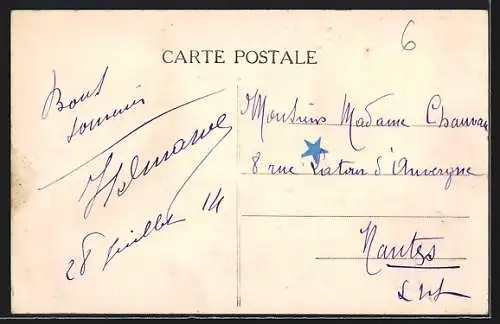 6
CARTE POSTALE
Bons
souvenirs
28 juillet 14
Monsieur Madame Chauveau
8 rue Latour d'Auvergne
Nantes